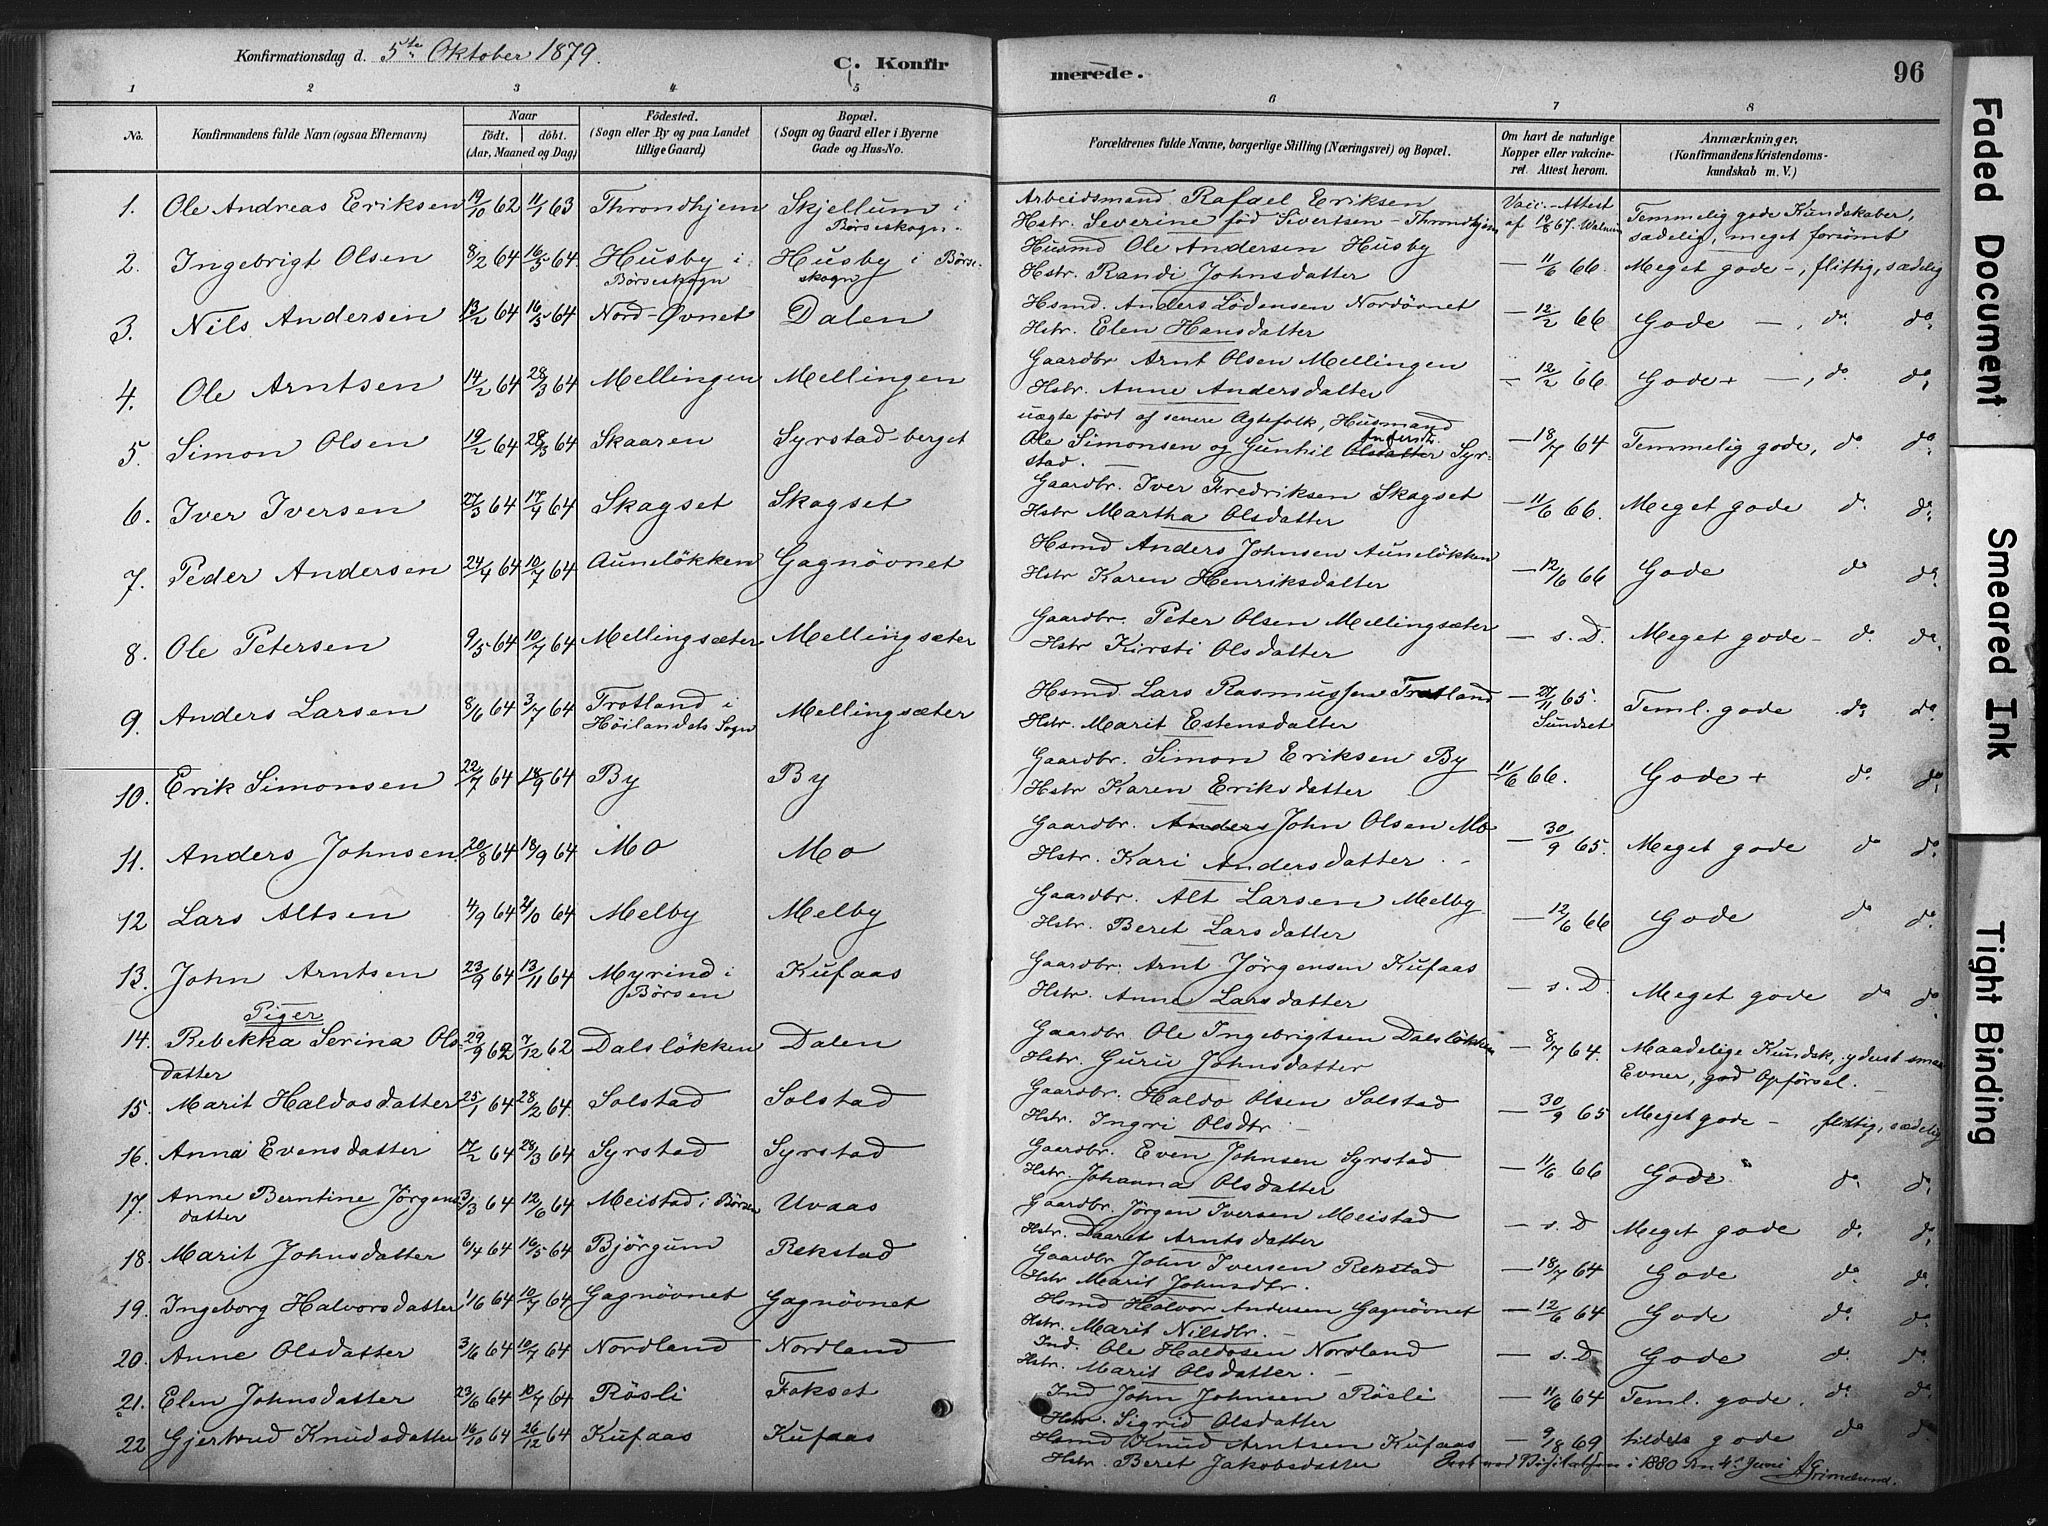 Konfirmationsdag d. 5te Oktober 1879.
C. Konfirmerede.
96
1 2 3 4 5 6 7 8
No. Konfirmandens fulde Navn (ogsaa Efternavn) Naar födt. döbt. (Aar, Maaned og Dag) Födested. (Sogn eller By og paa Landet tillige Gaard) Bopæl. (Sogn og Gaard eller i Byerne Gade og Hus-No. Forældrenes fulde Navne, borgerlige Stilling (Næringsvei) og Bopæl. Om havt de naturlige Kopper eller vakcineret. Attest herom. Anmærkninger. (Konfirmandens Kristendomskundskab m. V.)
1. Ole Andreas Eriksen 19/10 62 11/1 63 Throndhjem Skjellum i Börseskogn. Arbeidsmand Rafael Eriksen
Hstr. Severine föd Sivertsen - Throndhjem Vacc.-Attest af 19/8 67. Temmelig gode Kundskaber, sædelig, meget forsömt
2. Ingebrigt Olsen 8/2 64 16/5 64. Husby i Börseskogn Husby i Börseskogn Husmd Ole Andersen Husby
Hstr. Randi Johnsdatter — 11/6 66. Meget gode -, flittig, sædelig
3. Nils Andersen 13/2 64 16/5 64 Nord-Övnet Dalen Hsmd. Anders Lödensen Nordövnet
Hstr. Elen Hansdatter — 12/2 66 Gode —, do. do.
4. Ole Arntsen 14/2 64 28/3 64 Mellingen Mellingen Gaardbr Arnt Olsen Mellingen
Hstr. Anne Andersdatter — 12/2 66. Gode + —, do. do.
5. Simon Olsen 19/2 64 28/3 64 Skaaren Syrstad-berget uægte födt af senere Ægtefolk, Husmand
Ole Simonsen og Gunhil Olsdatter Andersd. Syrstad. — 18/7 64 Temmelig gode, do. do.
6. Iver Iversen 27/3 64 17/4 64 Skagset Skagset Gaardbr. Iver Fredriksen Skagset
Hstr Martha Olsdatter — 11/6 66. Meget gode do. do.
7. Peder Andersen 24/4 64 10/7 64 Auneløkken Gagnövnet Hsmd Anders Johnsen Auneløkken
Hstr Karen Henriksdatter — 12/6 66 Gode do do.
8. Ole Petersen 9/5 64 10/7 64 Mellingsæter Mellingsæter Gaardbr. Peter Olsen Mellingsæter
Hstr Kirsti Olsdatter — s. D. Meget gode - do. do.
9. Anders Larsen 8/6 64 3/7 64 Trotland i Höilandets Sogn Mellingsæter Hsmd. Lars Rasmussen Trotland
Hstr. Marit Estensdatter — 27/11 65. Sundset Teml. gode do. do.
10. Erik Simonsen 22/7 64 18/9 64 By By Gaardbr. Simon Eriksen By
Hstr Karen Eriksdatter 11/6 66. Gode + do. do.
11. Anders Johnsen 20/8 64 18/9 64 Mo Mo Gaardbr. Anders John Olsen Mo
Hstr. Kari Andersdatter. — 30/9 65. Meget gode do do.
12 Lars Altsen 4/9 64 2/10 64 Melby Melby Gaardbr. Alt Larsen Melby
Hstr. Beret Larsdatter — 12/6 66 Gode do do.
13. John Arntsen 23/9 64 13/11 64 Myrind i Börsen Kufaas Gaardbr. Arnt Jörgensen Kufaas
Hstr. Anne Larsdatter — s. D. Meget gode do do.
Piger
14. Rebekka Serina Olsdatter 29/9 62 7/12 62 Dalsløkken Dalen Gaardbr Ole Ingebrigtsen Dalsløkken
Hstr. Guru Johnsdatter — 8/7 64. Maadelige Kundsk., yderst smaa Evner, god Opförsel. —
15. Marit Haldosdatter 25/1 64 28/2 64. Solstad Solstad Gaardbr. Haldo Olsen Solstad
Hstr. Ingri Olsdtr. — 30/9 65 Meget gode - , flittig, sædelig
16. Anna Evensdatter 17/2 64 28/3 64 Syrstad Syrstad Gaardbr. Even Johnsen Syrstad.
Hstr. Johanna Olsdatter — 11/6 66 Gode do. do.
17. Anne Berntine Jörgensdatter 3/3 64 12/6 64 Meistad i Börsen Uvaas Gaardbr. Jörgen Iversen Meistad
Hstr. Daaret Arntsdatter — s. D Meget gode do. do.
18. Marit Johnsdatter 6/4 64 16/5 64 Björgum Rekstad Gaardbr John Iversen Rekstad
Hstr Marit Johnsdtr. — 18/7 64 Gode do do.
19. Ingeborg Halvorsdatter 1/6 64 10/7 64 Gagnövnet Gagnövnet Hsmd Halvor Andersen Gagnövnet
Hstr. Marit Nilsdtr. — — 12/6 64 Gode do. do.
20. Anne Olsdatter 3/6 64 10/7 64 Nordland Nordland Ind. Ole Haldosen Nordland
Hstr. Marit Olsdatter. — — s. D. Gode do. do.
21. Elen Johnsdatter 23/6 64 10/7 64 Rösli Fokset Ind John Johnsen Rösli
Hstr. Sigrid Olsdatter — 11/6 64 Teml. gode. do do.
22 Gjertrud Knudsdatter 16/10 64 26/12 64 Kufaas Kufaas Hsmd Knud Arntsen Kufaas
Hstr. Beret Jakobsdatter — 9/8 69 tildels gode do do.
i 1880 den 4de Juni Grimelund.
Faded Document
Smeared Ink
Tight Binding